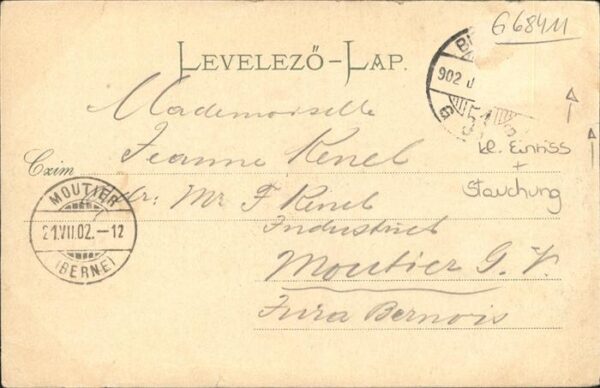 G68411
LEVELEZŐ-LAP.
902 J
51
kl. Einriss
+
Stauchung
Mademoiselle
Jeanne Kenel
Czim
Mr F Kenel
Industriel
Moutier G. V.
Jura Bernois
MOUTIER
21.VII.02.-12
(BERNE)